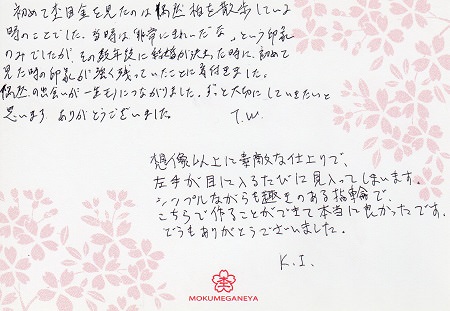 初めて杢目金を見たのは偶然柏を散歩している
時のことでした。当時は「非常にきれいだな」という印象
のみでしたが その数年後に結婚が決まった時に、初めて
見た時の印象が強く残っていたことに気付きました。
偶然の出会いが一生モノにつながりました。ずっと大切にしていきたいと
思います ありがとうございました。 T.W.
想像以上に素敵な仕上りで、
左手が目に入るたびに見入ってしまいます。
シンプルながらも趣きのある指輪で、
こちらで作ることができて本当に良かったです。
どうもありがとうございました。
K.I.
MOKUMEGANEYA